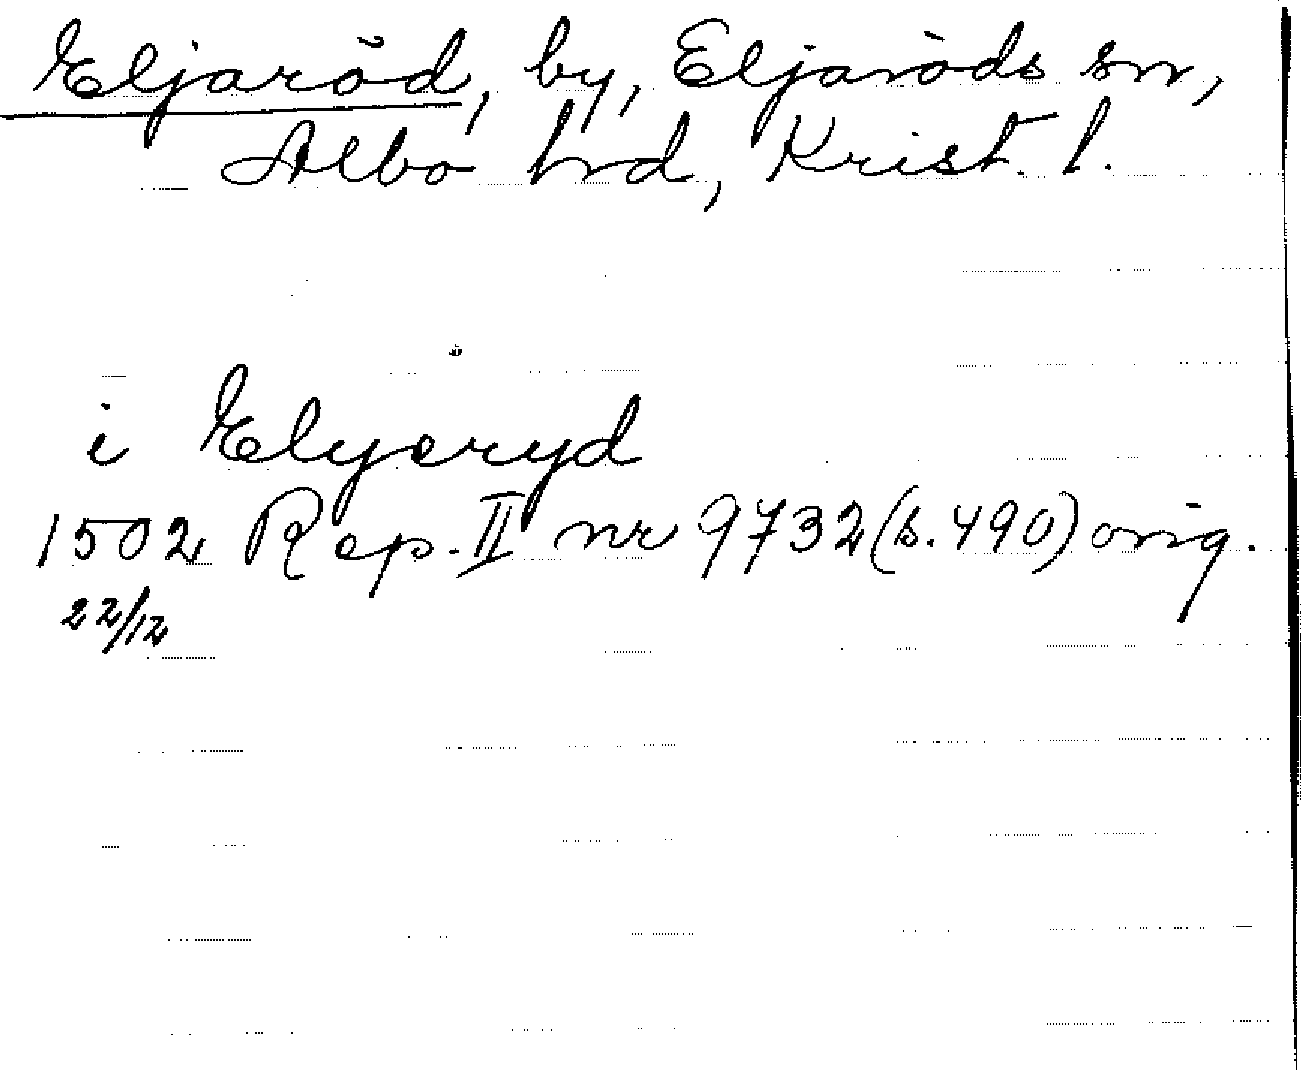 Eljaröd, by, Eljaröds sn,
Albo hd, Krist. l.
i Elyeryd
1502 Rep. II nr 9732 (s. 490) orig.
22/12